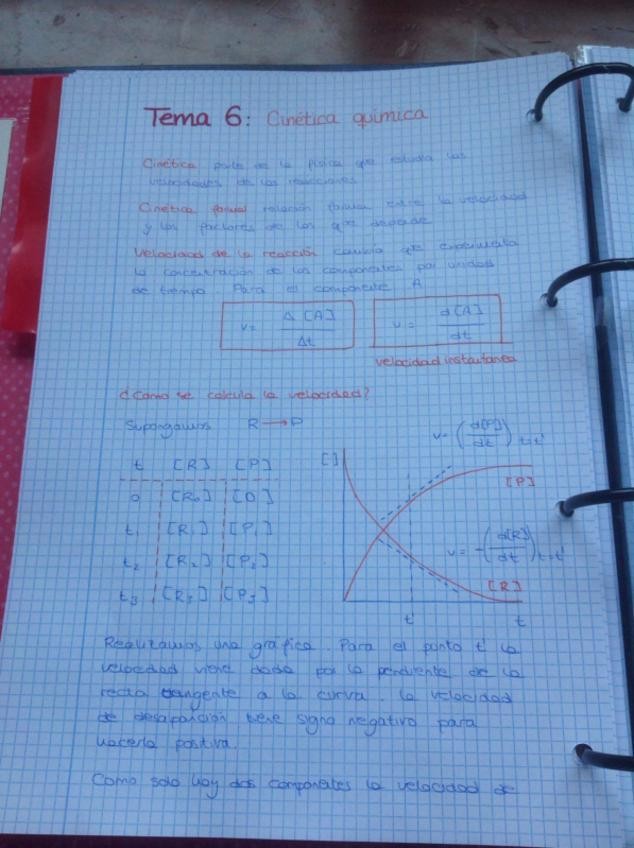 Tema 6: Cinética química
Cinética parte de la física que estudia las
velocidades de las reacciones
Cinética formal relación formal entre la velocidad
y los factores de los que depende
Velocidad de la reacción cambio que experimenta
la concentración de los componentes por unidad
de tiempo. Para el componente A
v = Δ[A] / Δt
v = d[A] / dt
velocidad instantánea
¿Cómo se calcula la velocidad?
Supongamos R → P
t [R] [P]
0 [R₀] [0]
t₁ [R₁] [P₁]
t₂ [R₂] [P₂]
t₃ [R₃] [P₃]
[ ]
v = (d[P] / dt) t=t'
[P]
v = -(d[R] / dt) t=t'
[R]
t' t
Realizamos una gráfica. Para el punto t' la
velocidad viene dada por la pendiente de la
recta tangente a la curva. La velocidad
de desaparición tiene signo negativo para
hacerla positiva.
Como solo hay dos componentes la velocidad de